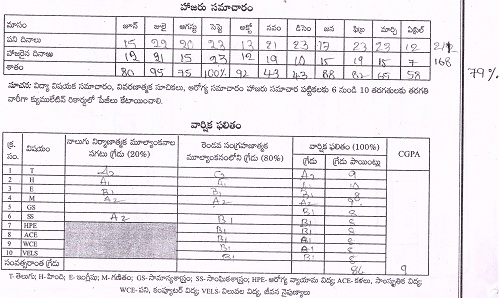 హాజరు సమాచారం
మాసం జూన్ జులై ఆగస్టు సెప్టె అక్టో నవం డిసెం జన ఫిబ్ర మార్చి ఏప్రిల్
పని దినాలు 15 22 20 23 13 21 23 17 23 23 12 212
హాజరైన దినాలు 12 21 15 23 12 19 10 15 19 15 7 168
శాతం 80 95 75 100% 92 43 43 88 82 65 58 79%
సూచన: విద్యా విషయక సమాచారం, వివరణాత్మక సూచికలు, ఆరోగ్య సమాచారం హాజరు సమాచార పట్టికలకు 6 నుండి 10 తరగతులకు తరగతి
వారీగా క్యుములేటివ్ రికార్డులో పేజీలు కేటాయించాలి.
వార్షిక ఫలితం
క్ర. సం. విషయం నాలుగు నిర్మాణాత్మక మూల్యాంకనాల సగటు గ్రేడు (20%) రెండవ సంగ్రహణాత్మక మూల్యాంకనంలోని గ్రేడు (80%) వార్షిక ఫలితం (100%) CGPA
గ్రేడు గ్రేడు పాయింట్లు
1 T A2 C2 A2 9
2 H A1 A1 A1 10
3 E B1 B1 B1 8
4 M A2 A2 A2
5 GS B1 8
6 SS A2 B1 B1 8
7 HPE B1 B1 8
8 ACE B1 B1 8
9 WCE B1 B1 8
10 VELS B1 B1 8
సంవత్సరాంత గ్రేడు 86 9
T- తెలుగు; H-హింది; E- ఇంగ్లీషు; M-గణితం; GS- సామాన్యశాస్త్రం; SS- సాంఘికశాస్త్రం; HPE- ఆరోగ్య వ్యాయామ విద్య; ACE-కళలు, సాంస్కృతిక విద్య;
WCE-పని, కంప్యూటర్ విద్య; VELS-విలువల విద్య, జీవన నైపుణ్యాలు